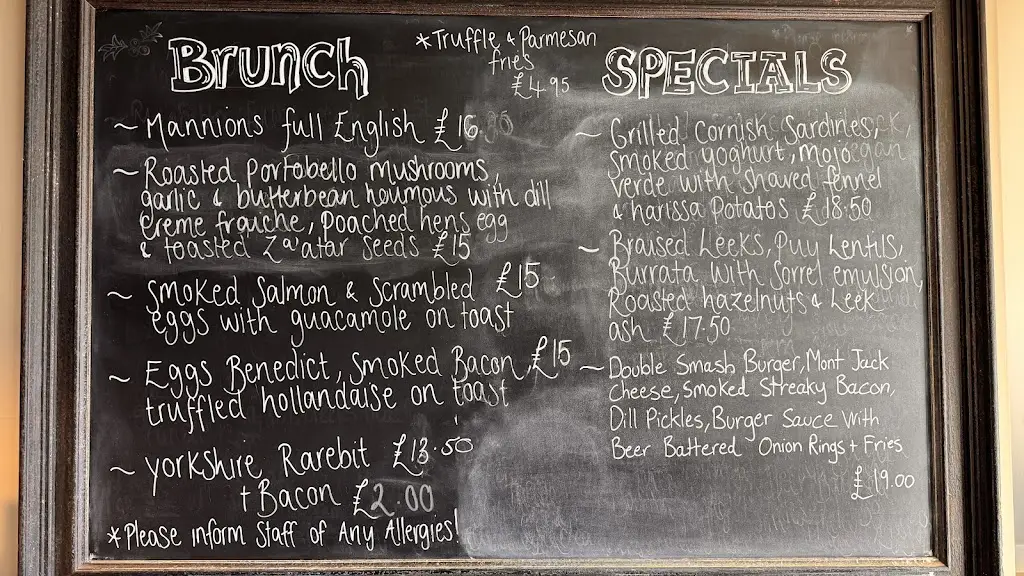 Brunch
~ Mannions full English £16
~ Roasted Portobello mushrooms,
garlic & butterbean houmous with dill
creme fraiche, poached hens egg
& toasted Za'atar seeds £15
~ Smoked Salmon & Scrambled £15
eggs with guacamole on toast
~ Eggs Benedict, Smoked Bacon, £15
truffled hollandaise on toast
~ Yorkshire Rarebit £13.50
+ Bacon £2.00
*Please inform Staff of Any Allergies!
*Truffle & Parmesan
fries
£4.95
SPECIALS
~ Grilled Cornish Sardines,
smoked yoghurt, mojo
verde with shaved fennel
& harissa potatos £18.50
~ Braised Leeks, Puy Lentils,
Burrata with Sorrel emulsion,
Roasted hazelnuts & Leek
ash £17.50
~ Double Smash Burger, Mont Jack
Cheese, Smoked Streaky Bacon,
Dill Pickles, Burger Sauce with
Beer Battered Onion Rings + Fries
£19.00